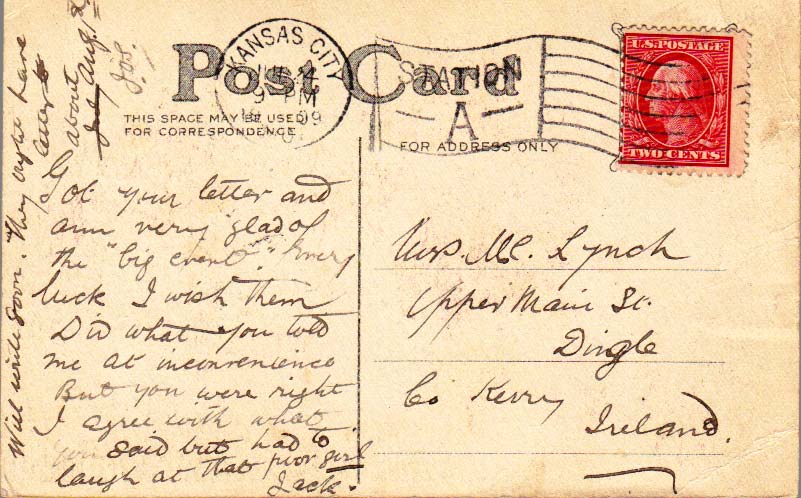 Post Card
KANSAS CITY
9 PM
STATION
A
U.S. POSTAGE
TWO CENTS
THIS SPACE MAY BE USED
FOR CORRESPONDENCE
FOR ADDRESS ONLY
Got your letter and
am very glad of
the "big event." Every
luck I wish them
Did what you told
me at inconvenience
But you were right
I agree with what
you said but had to
laugh at that poor girl
Jack.
Will write soon. They ought have
a letter
about
Aug. 2
Jos.
Mrs. Mc. Lynch
Upper Main St.
Dingle
Co Kerry
Ireland.